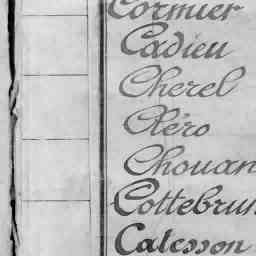 Cormier
Cadieu
Cherel
Cléro
Chouan
Cottebrun
Calesson